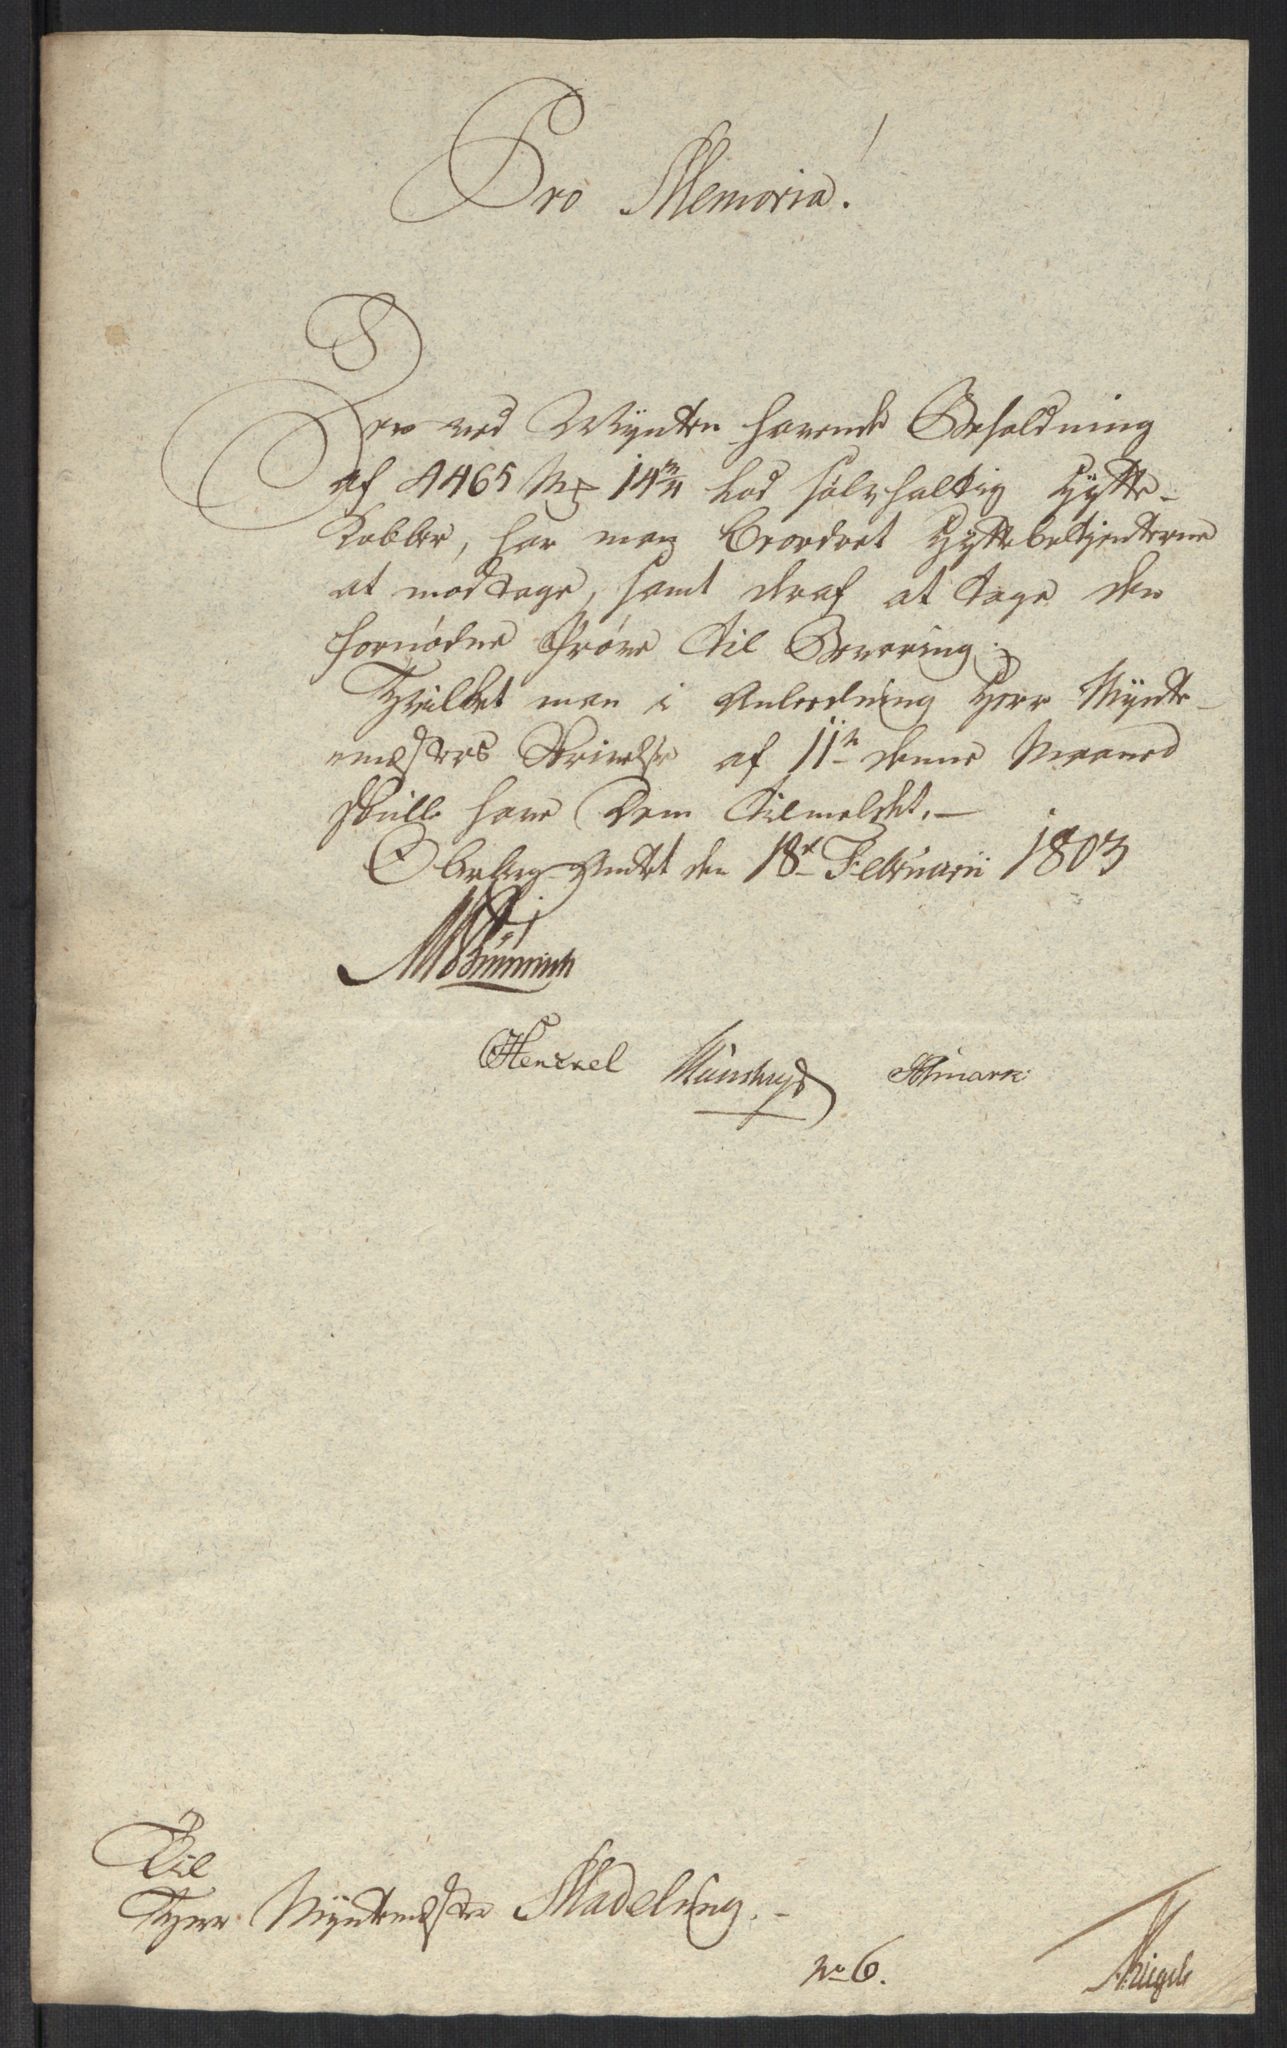 Pro Memoria!
Den ved Mynten havende Beholdning
af 4465 Mk 14 3/4 Lod sølvholdig Hytte-
Kobber, har man beordret Hyttebetjenterne
at modtage, samt deraf at tage den
fornødne Prøve til Bevaring.
Hvilket man i Anledning Herr Mynt-
mesters Skrivelse af 11te denne Maaned
skulle have Dem tilmeldet.-
Oberberg Amtet den 18de Februarii 1803
Henckel Esmark
Til
Herr Myntmester Madelung.-
No 6.